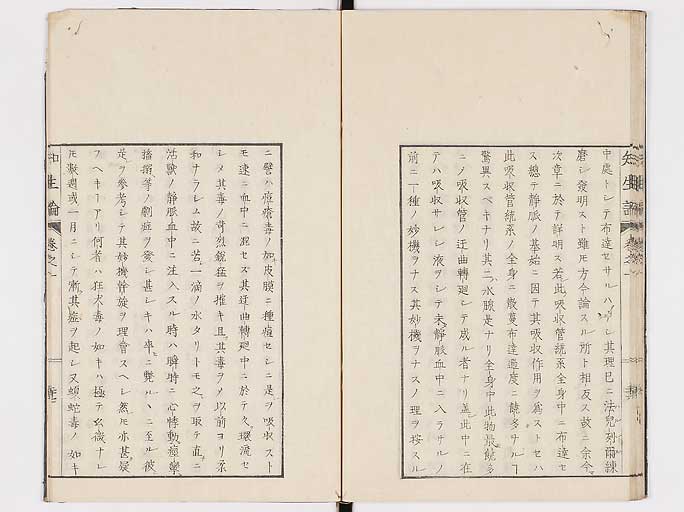 中處トシテ布達セサルハナシ其理巳ニ法兒列爾練
磨シ發明スト雖モ方今論スル所ト相反ス故ニ余今
次章ニ於テ詳明ス若此吸收管統系全身中ニ布達セ
ス總テ靜脈ノ基始ニ因テ其吸收作用ヲ爲ストセハ
此吸收管統系ノ全身ニ散蔓布達過度ニ饒多ナルヿ
驚異スベキナリ其二水腺是ナリ全身中此物最饒多
ニノ吸收管ノ迂曲轉廻シテ成ル者ナリ蓋此中ニ在
テハ吸收サレシ液ヲシテ未靜脈血中ニ入ラサルノ
前ニ一種ノ妙機ヲナス其妙機ヲナスノ理ヲ按スル
知生論
卷之一
ニ譬ハ痘瘡毒ノ如皮膜ニ種痘セシニ是ヲ吸收スト
モ速ニ血中ニ混セス其迂曲轉廻中ニ於テ久環流セ
シメ其毒ノ苛烈銳猛ヲ摧キ且其毒ヲノ以前ヨリ柔
和ナラシム故ニ若一滴ノ水タリトモ之ヲ取テ直ニ
活獸ノ靜脈血中ニ注入スル時ハ瞬時ニ心悸動瘛攣
搐搦等ノ劇症ヲ發シ甚シキハ卒ニ斃ルヽニ至ル彼
是ヲ參考シテ其妙機幹旋ヲ理會スヘシ然モ亦甚疑
フヘキヿアリ何者ハ狂犬毒ノ如キハ極テ幺微ナレ
モ數週或一月ニシテ漸其症ヲ起シ又蝮蛇毒ノ如キ
知生論
卷之一